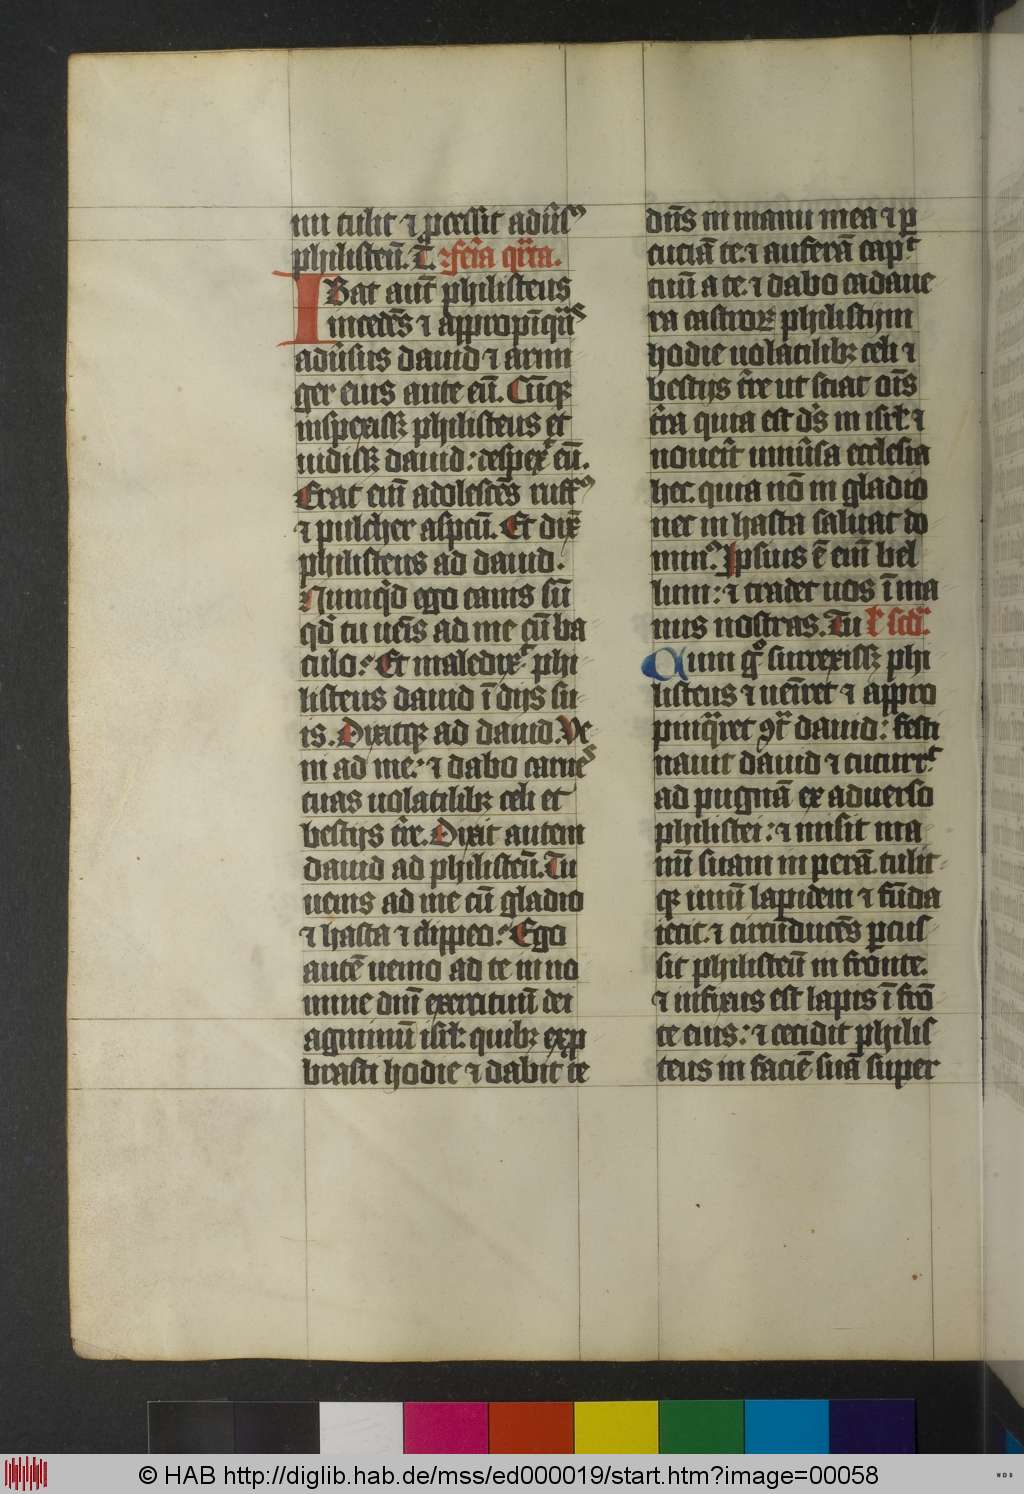 nu tulit ⁊ ꝓcessit adũs᷒
philisteũ. T̃. feria q̃rta.
IBat aut̃ philisteus
incedẽs ⁊ appropĩq̃ns
adũsus dauid ⁊ armi
ger eius ante eũ. Cũqꝫ
inspexissꝫ philisteus et
uidissꝫ dauid: despex̾ eũ.
Erat eñi adolescẽs ruff᷒
⁊ pulcher aspc̃u. Et dix̃
philisteus ad dauid.
Numq̃d ego canis sũ
qđ tu ueĩs ad me cũ ba
culo: Et maledix̾ phi
listeus dauid ĩ dijs su
is. Dixitqꝫ ad dauid. Ve
ni ad me: ⁊ dabo carnes
tuas uolatilibꝫ celi et
bestijs t̃re. Dixit autem
dauid ad philisteũ. Tu
uenis ad me cũ gladio
⁊ hasta ⁊ clippeo: Ego
autẽ uenio ad te in no
mine dñi exercituũ dei
agminũ isrł: quibꝫ exꝓ
brasti hodie ⁊ dabit te
dñs in manu mea ⁊ ꝑ
cuciã te: ⁊ auferã cap̾
tuũ a te: ⁊ dabo cadaue
ra castroꝝ philistijm
hodie uolatilibꝫ celi ⁊
bestijs t̃re ut sciat oĩs
t̃ra quia est dẽs in isrł: ⁊
nouerit uniũsa ecclesia
hec: quia nõ in gladio
nec in hasta saluat do
min᷒. Ipsius ẽ eñi bel
lum: ⁊ tradet uos ĩ ma
nus nostras. Tu łc̃ sc̃da.
Cum g̊ surrexissꝫ phi
listeus ⁊ uẽiret ⁊ appro
pinq̃ret ꝯt̃ dauid: festi
nauit dauid ⁊ cucurr̾
ad pugnã ex aduerso
philistei: ⁊ misit ma
nũ suam in perã. tulit
qꝫ unũ lapidem ⁊ fũda
iecit: ⁊ circũducẽs ꝑcus
sit philisteũ in fronte.
⁊ infixus est lapis ĩ frõ
te eius: ⁊ cecidit philis
teus in faciẽ suã super
© HAB http://diglib.hab.de/mss/ed000019/start.htm?image=00058